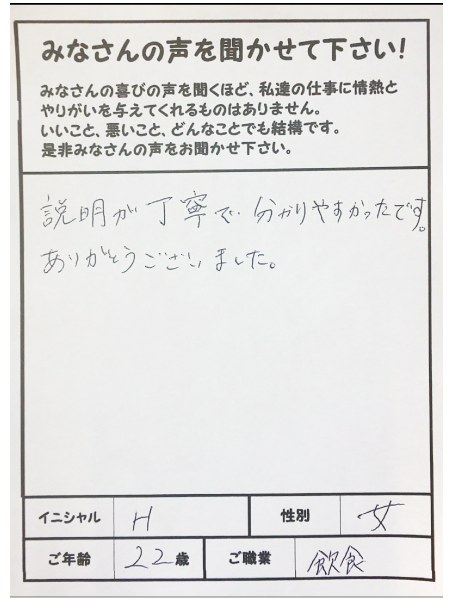 みなさんの声を聞かせて下さい!
みなさんの喜びの声を聞くほど、私達の仕事に情熱と
やりがいを与えてくれるものはありません。
いいこと、悪いこと、どんなことでも結構です。
是非みなさんの声をお聞かせ下さい。
説明が丁寧で分かりやすかったです。
ありがとうございました。
イニシャル H 性別 女
ご年齢 22歳 ご職業 飲食